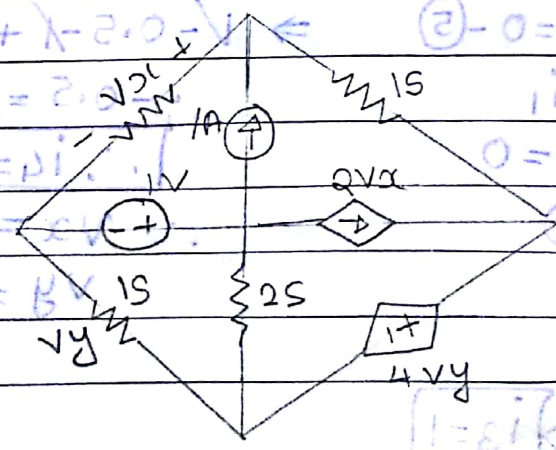 Vx
+
-
1S
1A
1V
- +
2Vx
1S
2S
Vy
+
4Vy